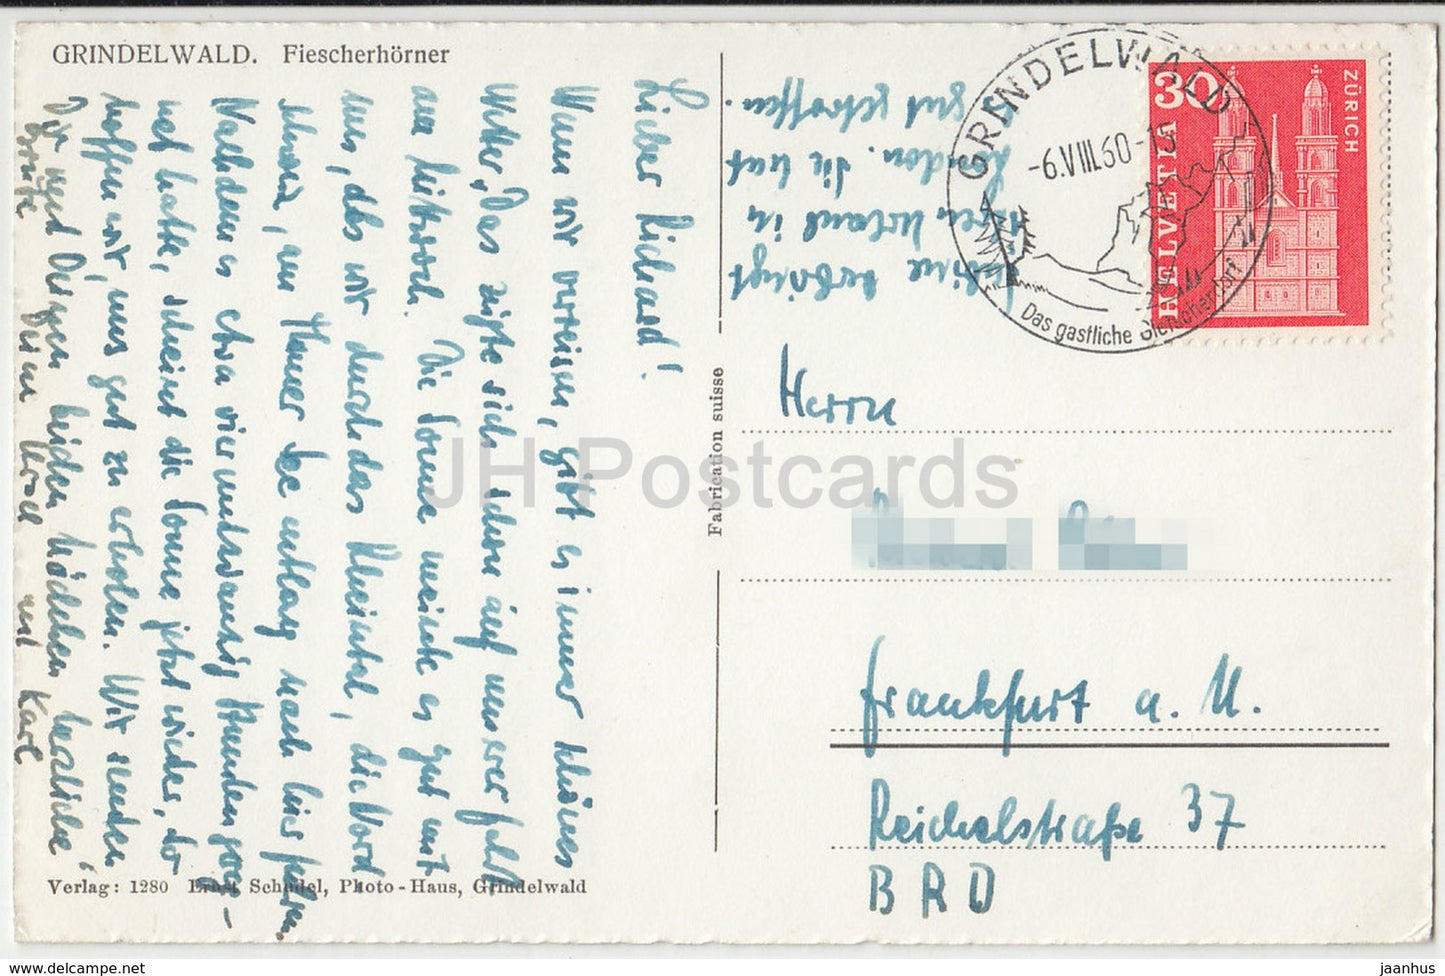 GRINDELWALD. Fiescherhörner
Lieber Richard!
Wenn wir verreisen, gibt es immer schönes
Wetter. Das zeigte sich schon auf unserer Fahrt
am Mittwoch. Die Sonne meinte es gut mit
uns, als wir durch das Rheintal, die Nord
schweiz, am Thuner See entlang nach hier fuhren.
Nachdem es etwa vierundzwanzig Stunden geregnet
hatte, scheint die Sonne jetzt wieder, so
hoffen wir, uns gut zu erholen. Wir senden
Dir und Deinen beiden Mädchen herzliche
Grüße Deine Ursel und Karl
Verlag: 1280 Ernst Schudel, Photo-Haus, Grindelwald
Fabrication suisse
verbringt
ihren Urlaub in
London. Sie hat
gut getroffen.
GRINDELWALD
-6.VIII.60-15
Das gastliche Gletscherdorf
30
HELVETIA
ZÜRICH
Herrn
Frankfurt a. M.
Reichelstraße 37
BRD
JH Postcards
delcampe.net
jaanhus